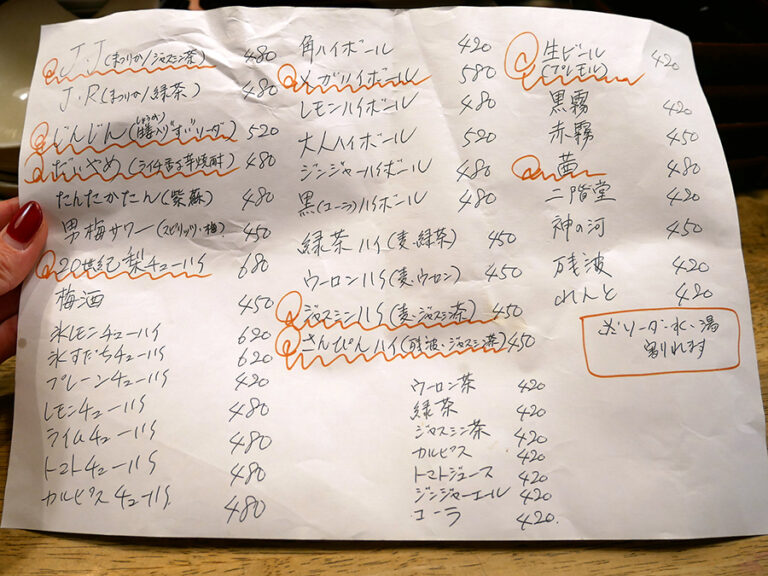 J・J(まつりか/ジャスミン茶) 480
J・R(まつりか/緑茶) 480
じんじん(生姜入り"すい"ソーダ) 520
だいやめ(ライチ香る芋焼酎) 480
たんたかたん(紫蘇) 480
男梅サワー(スピリッツ・梅) 450
20世紀梨チューハイ 680
梅酒 450
氷レモンチューハイ 620
氷すだちチューハイ 620
プレーンチューハイ 420
レモンチューハイ 480
ライムチューハイ 480
トマトチューハイ 480
カルピスチューハイ 480
角ハイボール 420
メガハイボール 580
レモンハイボール 480
大人ハイボール 520
ジンジャーハイボール 480
黒(コーラ)ハイボール 480
緑茶ハイ(麦・緑茶) 450
ウーロンハイ(麦・ウーロン) 450
ジャスミンハイ(麦・ジャスミン茶) 450
さんぴんハイ(残波・ジャスミン茶) 450
ウーロン茶 420
緑茶 420
ジャスミン茶 420
カルピス 420
トマトジュース 420
ジンジャーエール 420
コーラ 420.
生ビール 420
(プレモル)
黒霧 420
赤霧 450
茜 480
二階堂 420
神の河 450
残波 420
れんと 420
ソーダ・水・湯
割れます